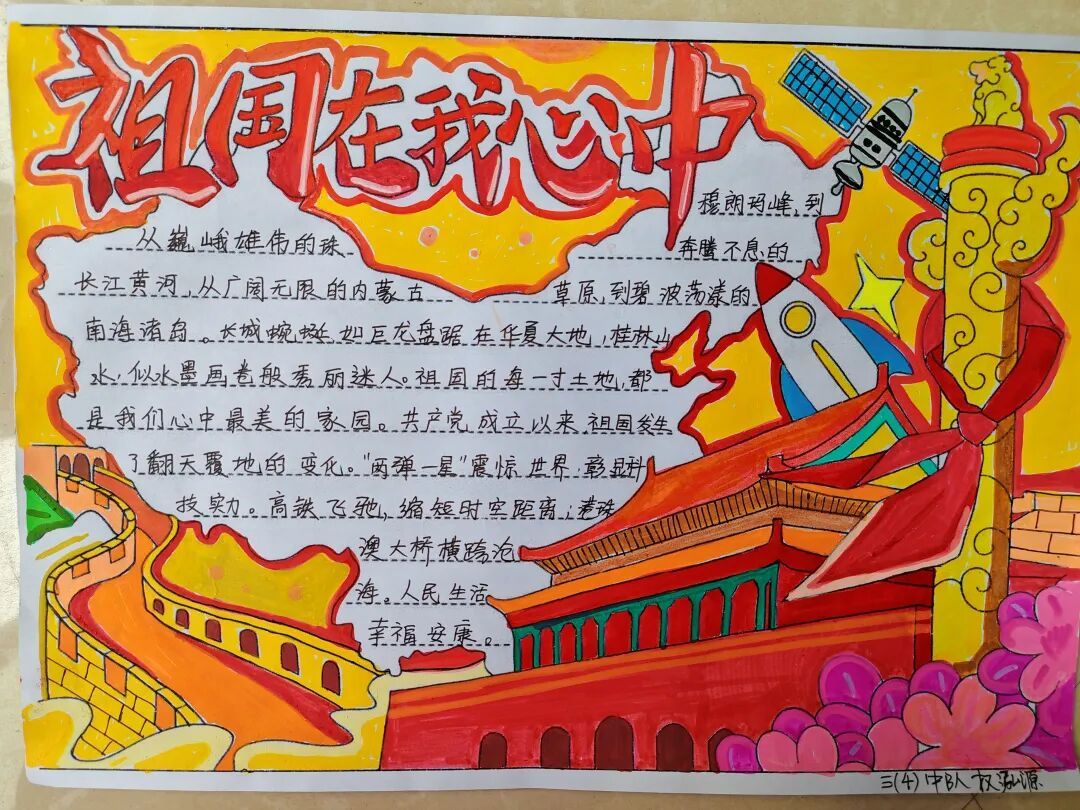 祖国在我心中
从巍峨雄伟的珠穆朗玛峰,到
奔腾不息的
长江黄河,从广阔无限的内蒙古草原,到碧波荡漾的
南海诸岛。长城蜿蜒如巨龙盘踞在华夏大地,桂林山
水,似水墨画卷般秀丽迷人。祖国的每一寸土地,都
是我们心中最美的家园。共产党成立以来祖国发生
了翻天覆地的变化。"两弹一星"震惊世界,彰显科
技实力。高铁飞驰,缩短时空距离;港珠
澳大桥横跨沧
海。人民生活
幸福安康。
三(4)中队 权泓源